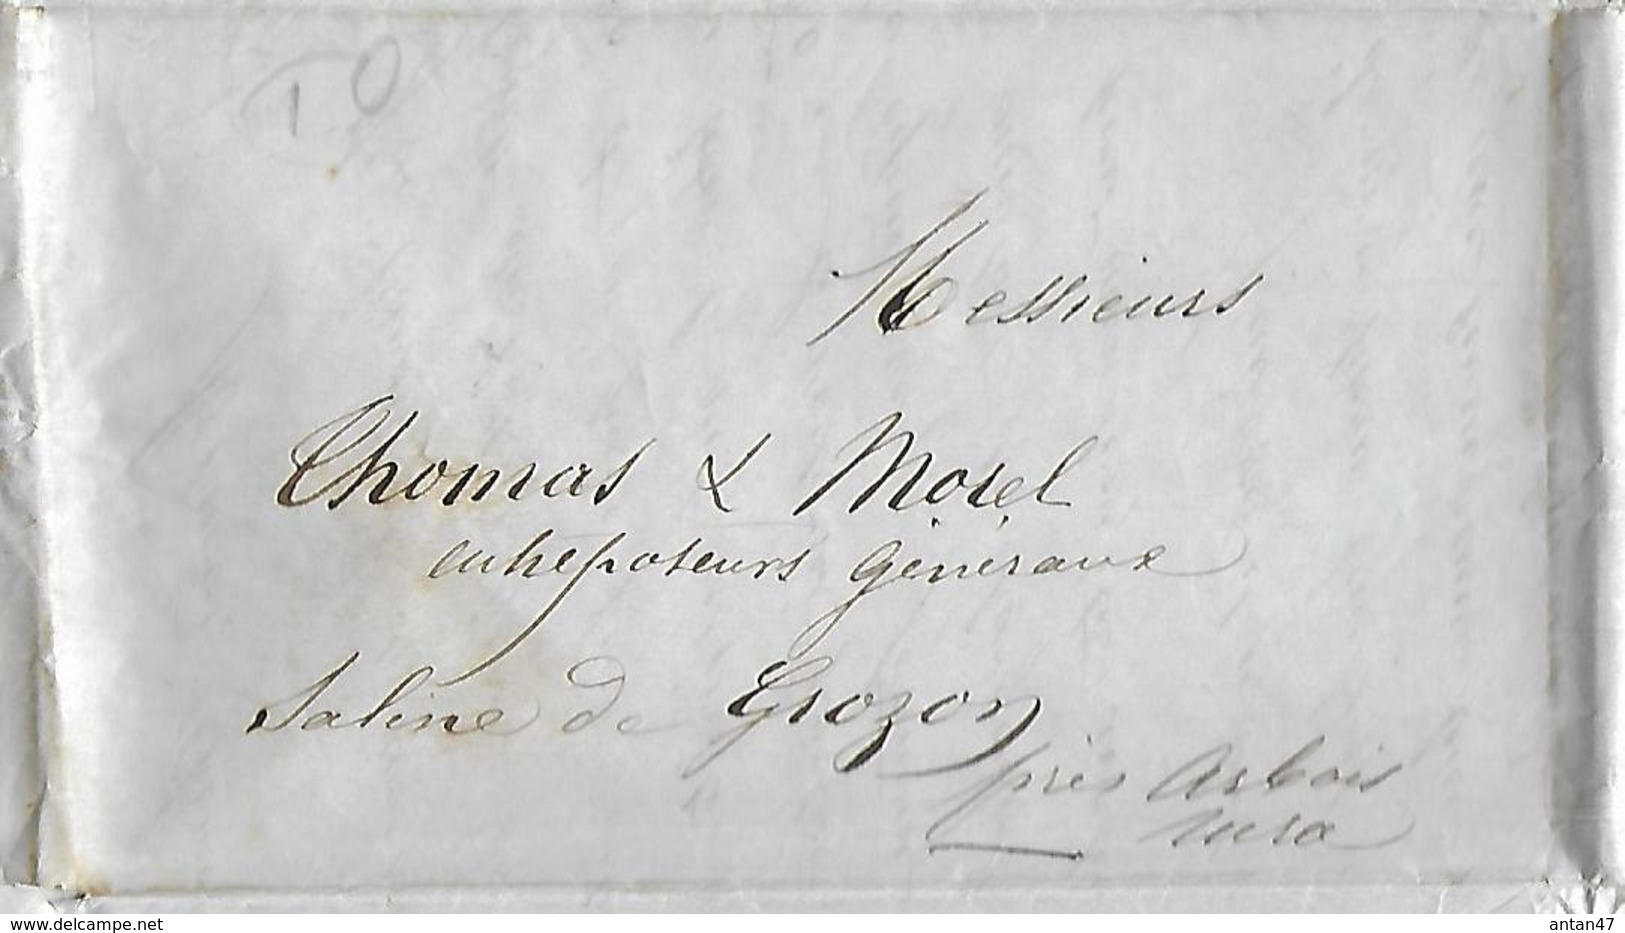 Messieurs
Thomas & Morel
entreposeurs généraux
Saline de Grozon
près Arbois
Jura
www.delcampe.net
antan47